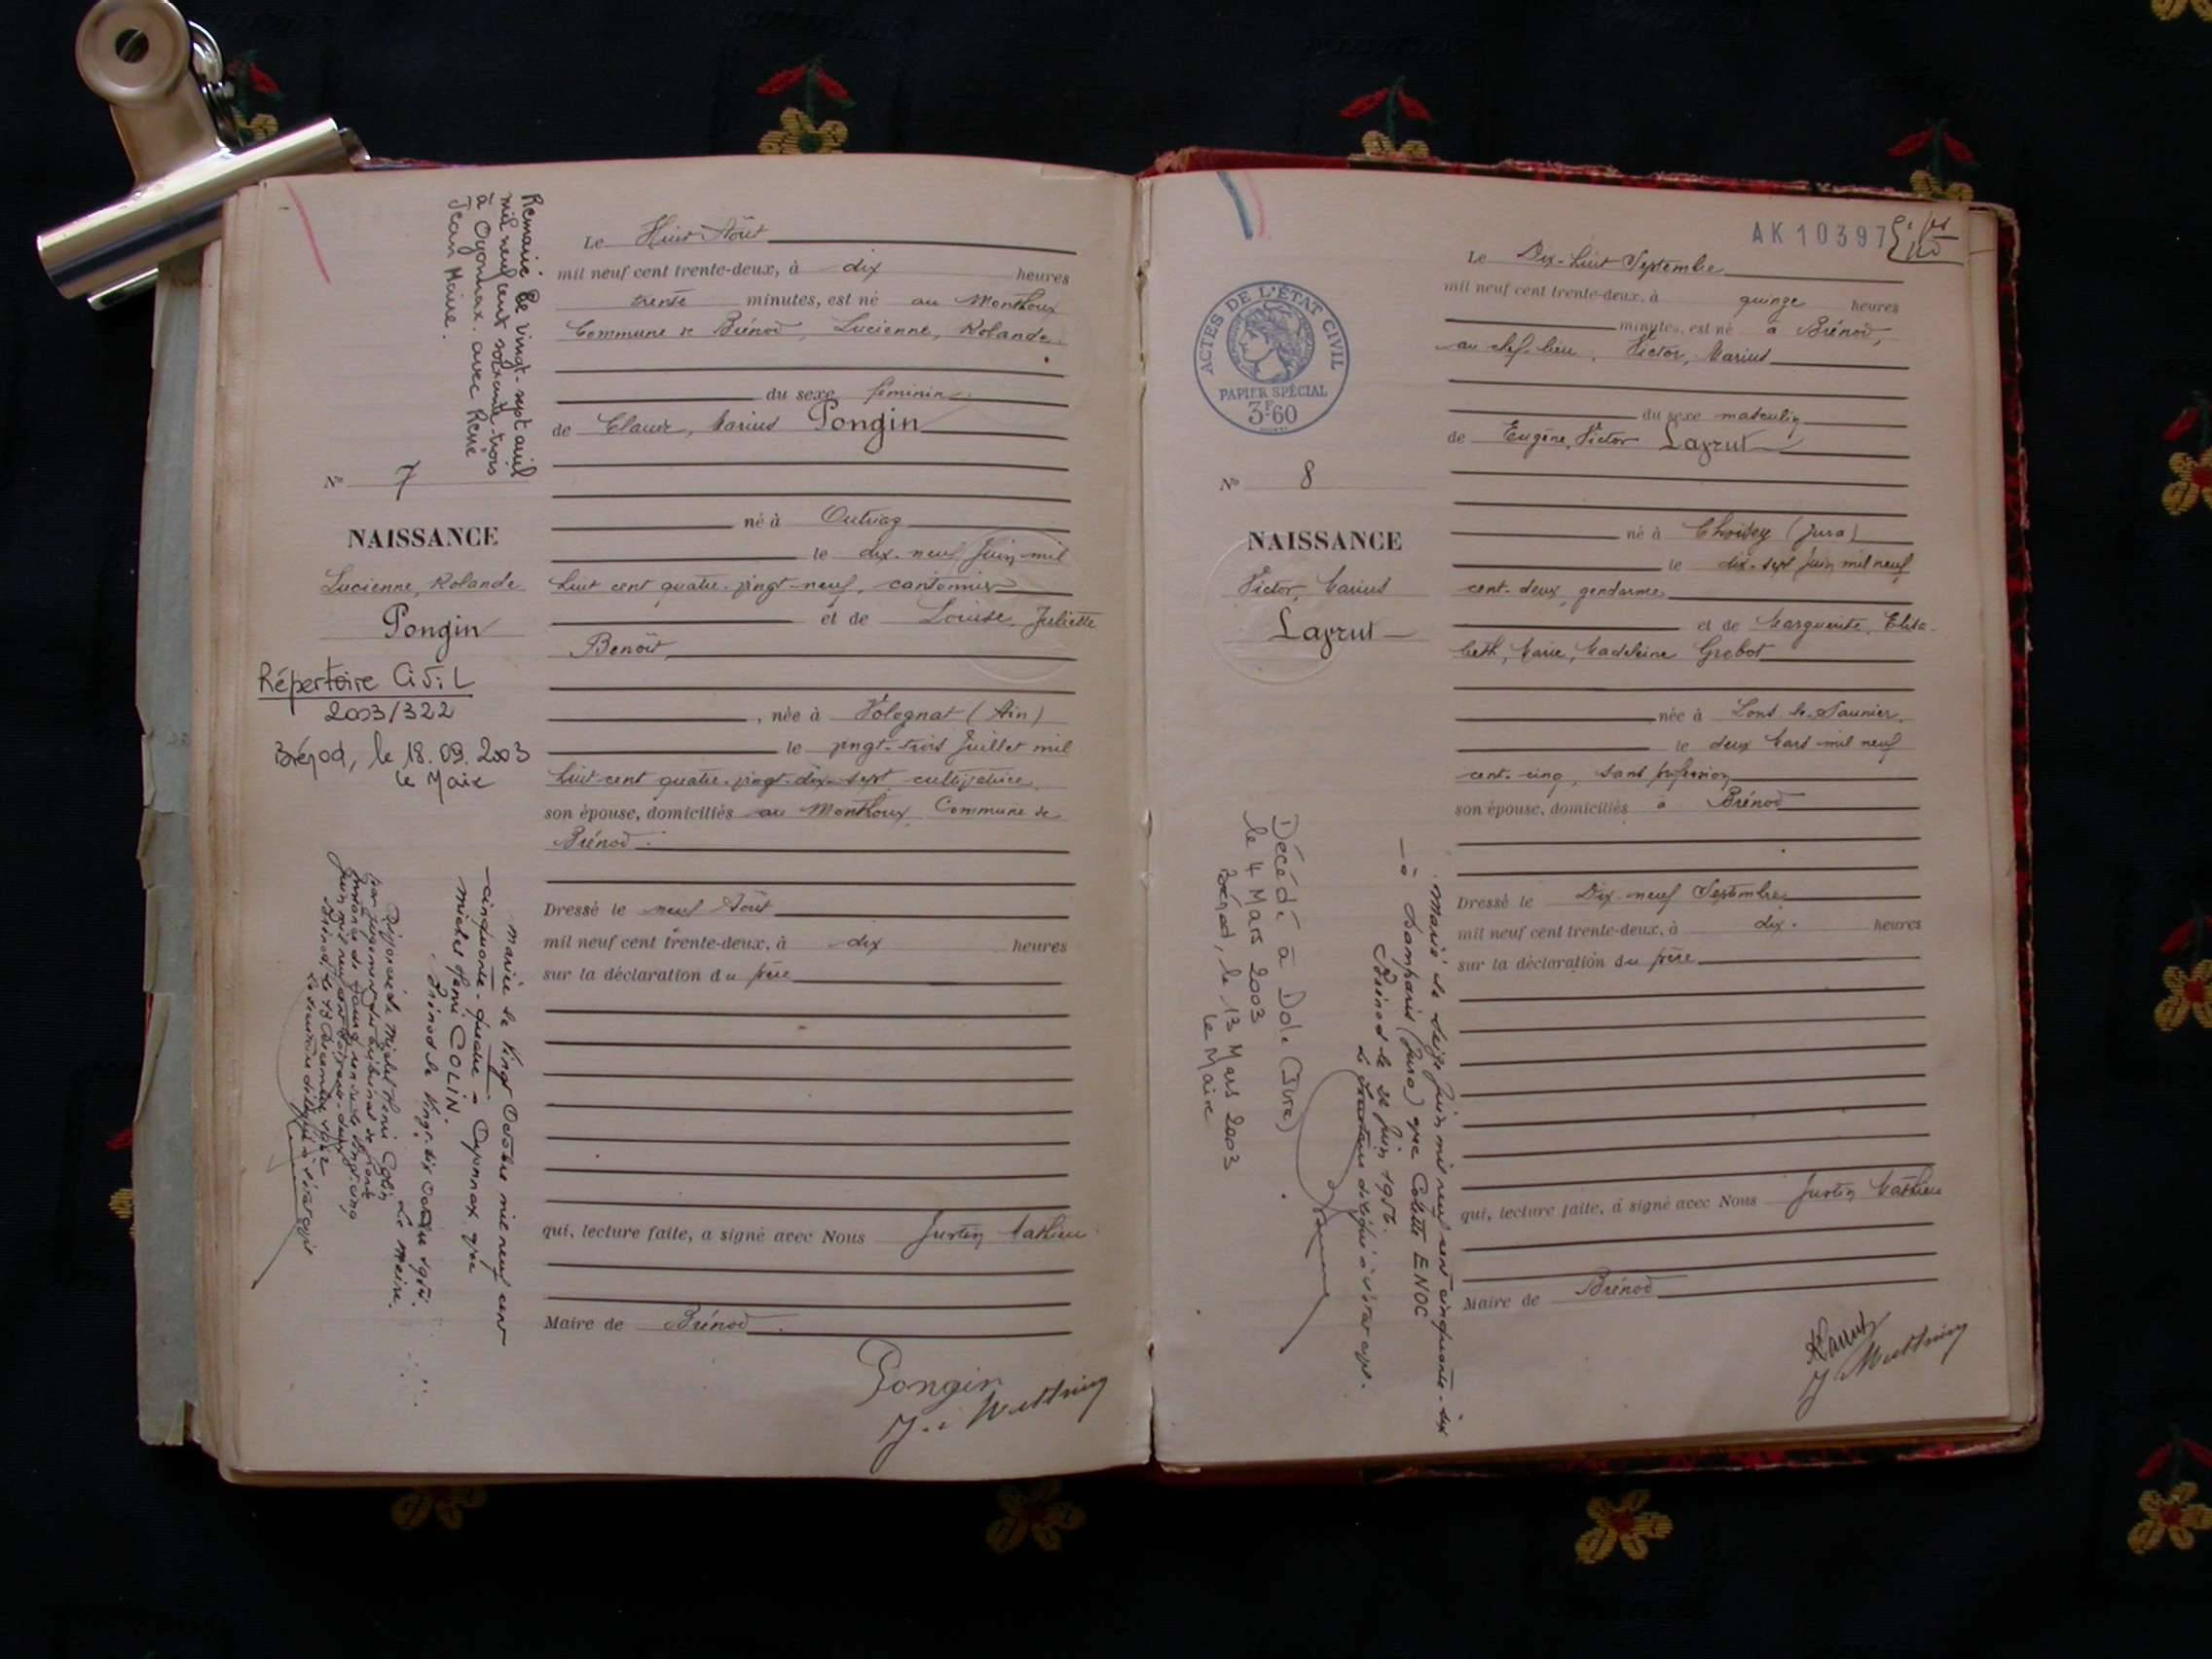 Remarié Le vingt-sept avril
mil neuf cent soixante-trois
à Oyonnax. avec René
Jean Maire.
N° 7
NAISSANCE
Lucienne, Rolande
Pongin
Répertoire Civil
2003/322
Brénod, le 18.09.2003
le Maire
mariée le vingt Octobre mil neuf cent
cinquante-quatre à Oyonnax avec
Michel Henri COLIN.
Brénod le vingt-six Octobre 1954.
Le Maire.
Michel Henri Colin
par jugement du tribunal de
Le Huit Août
mil neuf cent trente-deux, à dix heures
trente minutes, est né au Monthoux
Commune de Brénod, Lucienne, Rolande
du sexe féminin
de Claude, Marius Pongin
né à Outriaz
le dix-neuf Juin mil
huit cent quatre-vingt-neuf, cantonnier
et de Louise, Juliette
Benoît
, née à Volognat (Ain)
le vingt-trois Juillet mil
huit cent quatre-vingt-dix-sept cultivatrice
son épouse, domiciliés au Monthoux Commune de
Brénod.
Dressé le neuf Août
mil neuf cent trente-deux, à dix heures
sur la déclaration du père
qui, lecture faite, a signé avec Nous Justin Mathieu
Maire de Brénod
Pongin
AK10397
ACTES DE L'ÉTAT CIVIL
PAPIER SPÉCIAL
3F.60
N° 8
NAISSANCE
Victor, Marius
Lazrut
Décédé à Dole (Jura)
le 4 Mars 2003
Brénod, le 13 Mars 2003
le Maire
Marié le seize Juin mil neuf cent cinquante-six
à Damparis (Jura) avec Colette ENOC
Brénod le 22 Juin 1956.
Le Dix-huit Septembre
mil neuf cent trente-deux, à quinze heures
minutes, est né à Brénod,
au chef-lieu, Victor, Marius
du sexe masculin
de Eugène, Victor Lazrut
né à Choisey (Jura)
le dix-sept Juin mil neuf
cent-deux, gendarme
et de Marguerite, Elisa-
beth, Marie, Madeleine Grebot
née à Lons-le-Saunier
le deux Mars mil neuf
cent-cinq, sans profession
son épouse, domiciliés à Brénod
Dressé le Dix-neuf Septembre
mil neuf cent trente-deux, à dix heures
sur la déclaration du père
qui, lecture faite, a signé avec Nous Justin Mathieu
Maire de Brénod